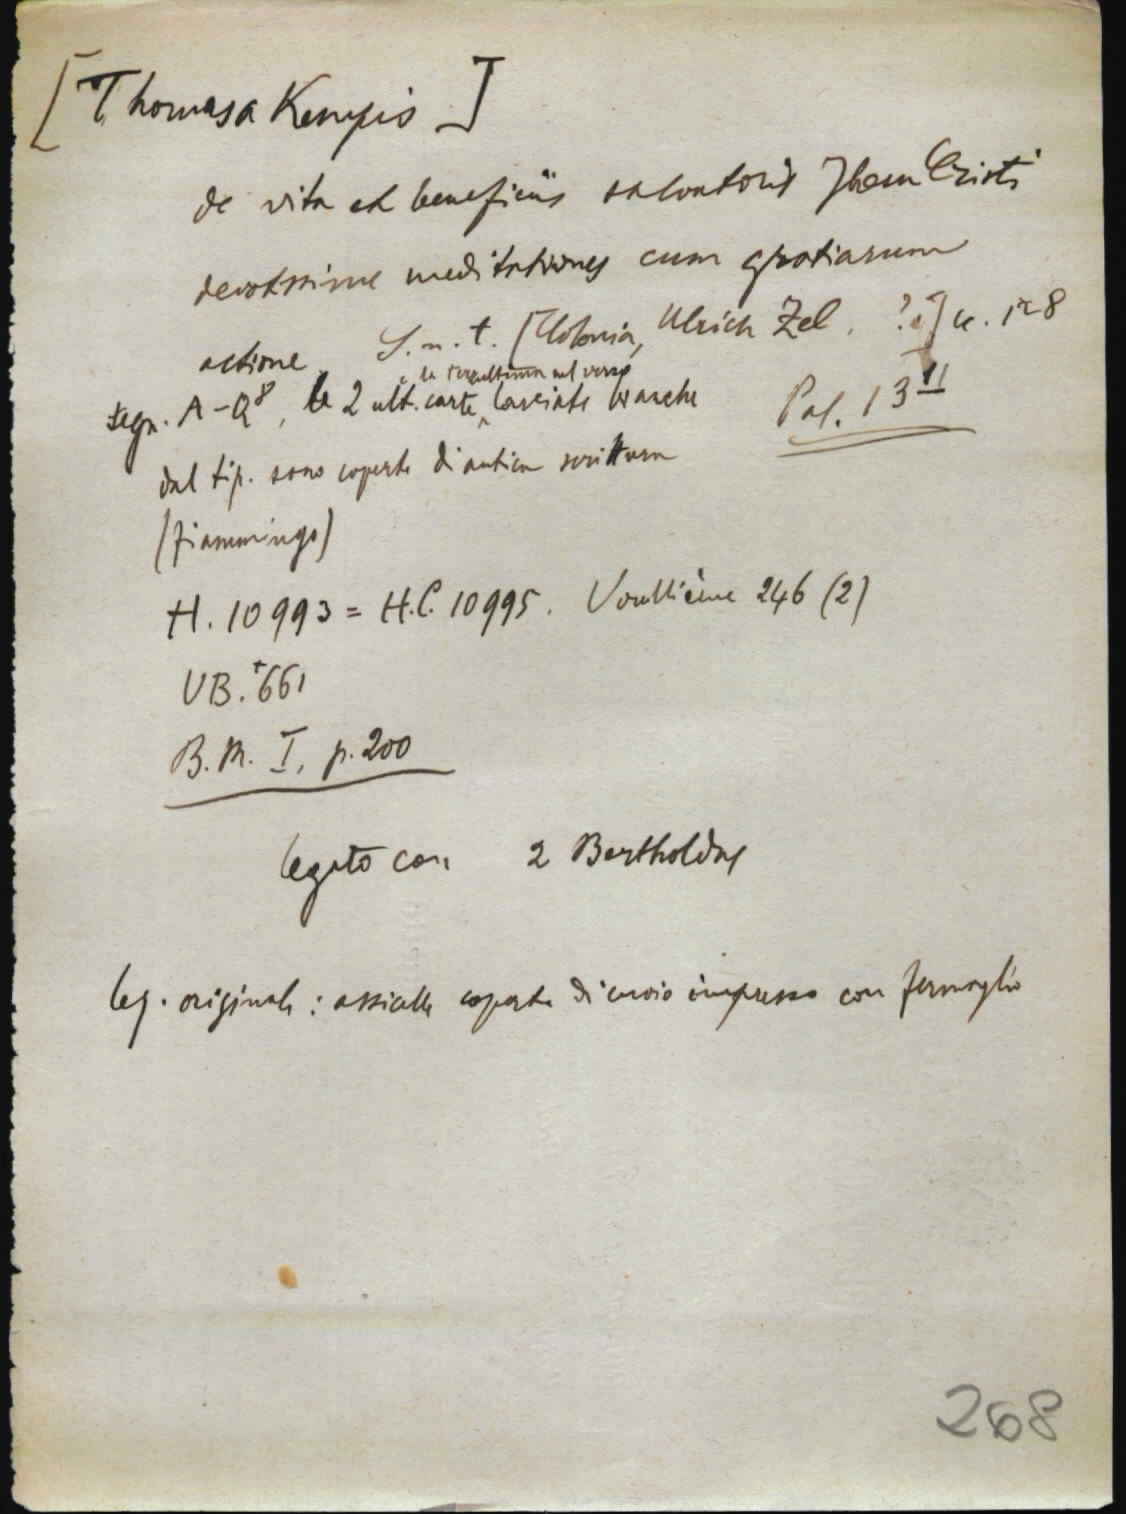 [Thomas a Kempis]
de vita et beneficiis salvatoris Jhesu Cristi
devotissime meditationes cum gratiarum
actione. S.n.t. [Colonia, Ulrich Zel. ?] c. 128
la terzultima sul verso
segn. A-Q8, le 2 ult. carte lasciate bianche
Pal. 13 II
dal tip. sono coperte di antica scrittura
(fiammingo)
H. 10993 = H.C. 10995. Voullième 246 (2)
VB. +661
B.M. I, p. 200
legato con 2 Bertholdus
leg. originale: assicelle coperte di cuoio impresso con fermaglio
268